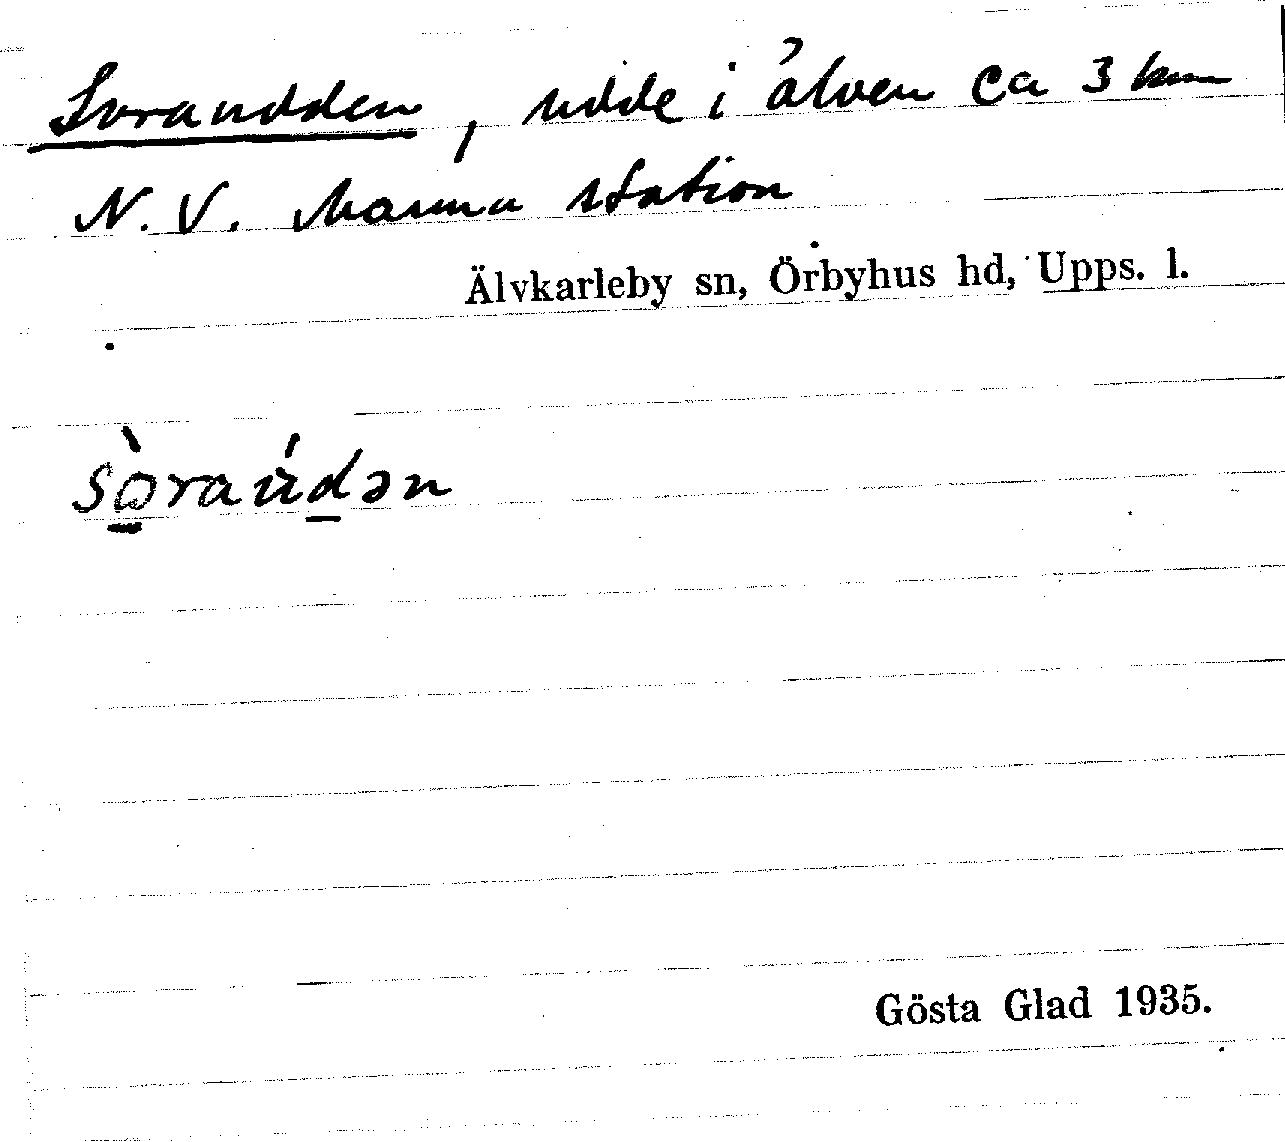 Sorandden, udde i älven ca 3 km
N.V. Marma station
Älvkarleby sn, Örbyhus hd, Upps. l.
sòraúdən
Gösta Glad 1935.